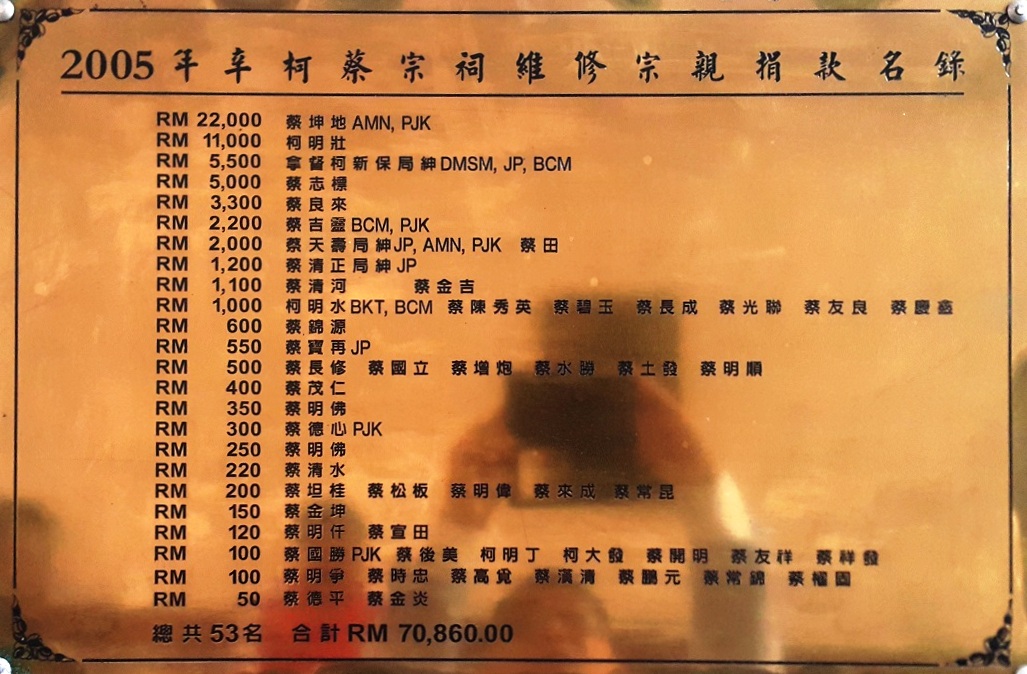 2005 年辛柯蔡宗祠維修宗親捐款名錄
RM 22,000 蔡坤地 AMN, PJK
RM 11,000 柯明壯
RM 5,500 拿督柯新保局紳 DMSM, JP, BCM
RM 5,000 蔡志標
RM 3,300 蔡良來
RM 2,200 蔡吉靈 BCM, PJK
RM 2,000 蔡天壽局紳 JP, AMN, PJK 蔡田
RM 1,200 蔡清正局紳 JP
RM 1,100 蔡清河 蔡金吉
RM 1,000 柯明水 BKT, BCM 蔡陳秀英 蔡碧玉 蔡長成 蔡光聯 蔡友良 蔡慶鑫
RM 600 蔡錦源
RM 550 蔡寶再 JP
RM 500 蔡長修 蔡國立 蔡增炮 蔡水勝 蔡土發 蔡明順
RM 400 蔡茂仁
RM 350 蔡明佛
RM 300 蔡德心 PJK
RM 250 蔡明佛
RM 220 蔡清水
RM 200 蔡坦桂 蔡松板 蔡明偉 蔡來成 蔡常昆
RM 150 蔡金坤
RM 120 蔡明仟 蔡宣田
RM 100 蔡國勝 PJK 蔡後美 柯明丁 柯大發 蔡開明 蔡友祥 蔡祥發
RM 100 蔡明爭 蔡時忠 蔡高覚 蔡漢清 蔡鵬元 蔡常錦 蔡
RM 50 蔡德平 蔡金炎
總共 53 名 合計 RM 70,860.00